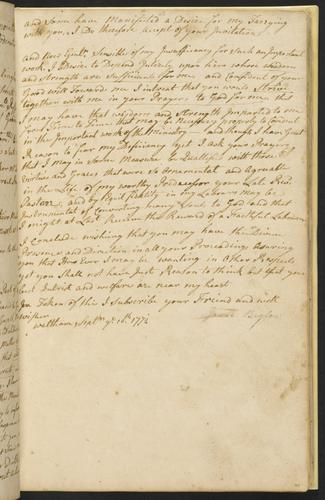 and Some have Manifested a Desire for my Tarrying
with you, I Do therefore accept of your Invitation,
and
work I Desire to Depend Intirely upon him whose wisdom
and strength are Sufficient for me, and Confident of your
Good will Towards me I intreat that you would Strive
together with me in your Prayers to God for me that
I may have that wisdom and Strength imparted to me
from Time to Time that may be necessary properly to Conduct
in the Important work of the Ministry and though I have Great
Reason to fear my Deficiency yet I ask your Prayers
that I may in Some Measure be Quallified with those
Virtues and Graces that were So Ornamental and Agreable
in the Life of my worthy Predecessor your Late Revd
Pastor, and by Equil fidelity in my Labours may be
Instrumental of Converting many Souls to God and that
I might at Last Receive the Reward of a Faithful Labourer
I Conclude wishing that you may have the Divine
Presence and Direction in all your Proceedings
that How Ever I may be wanting in Other Respects
yet you Shall not have Just Reason to think but that your
best Intrest and welfare are near my heart
In Token of this I Subscribe your Friend and well
wisher
Waltham Septr ye 16th 1774 Jacob Biglow